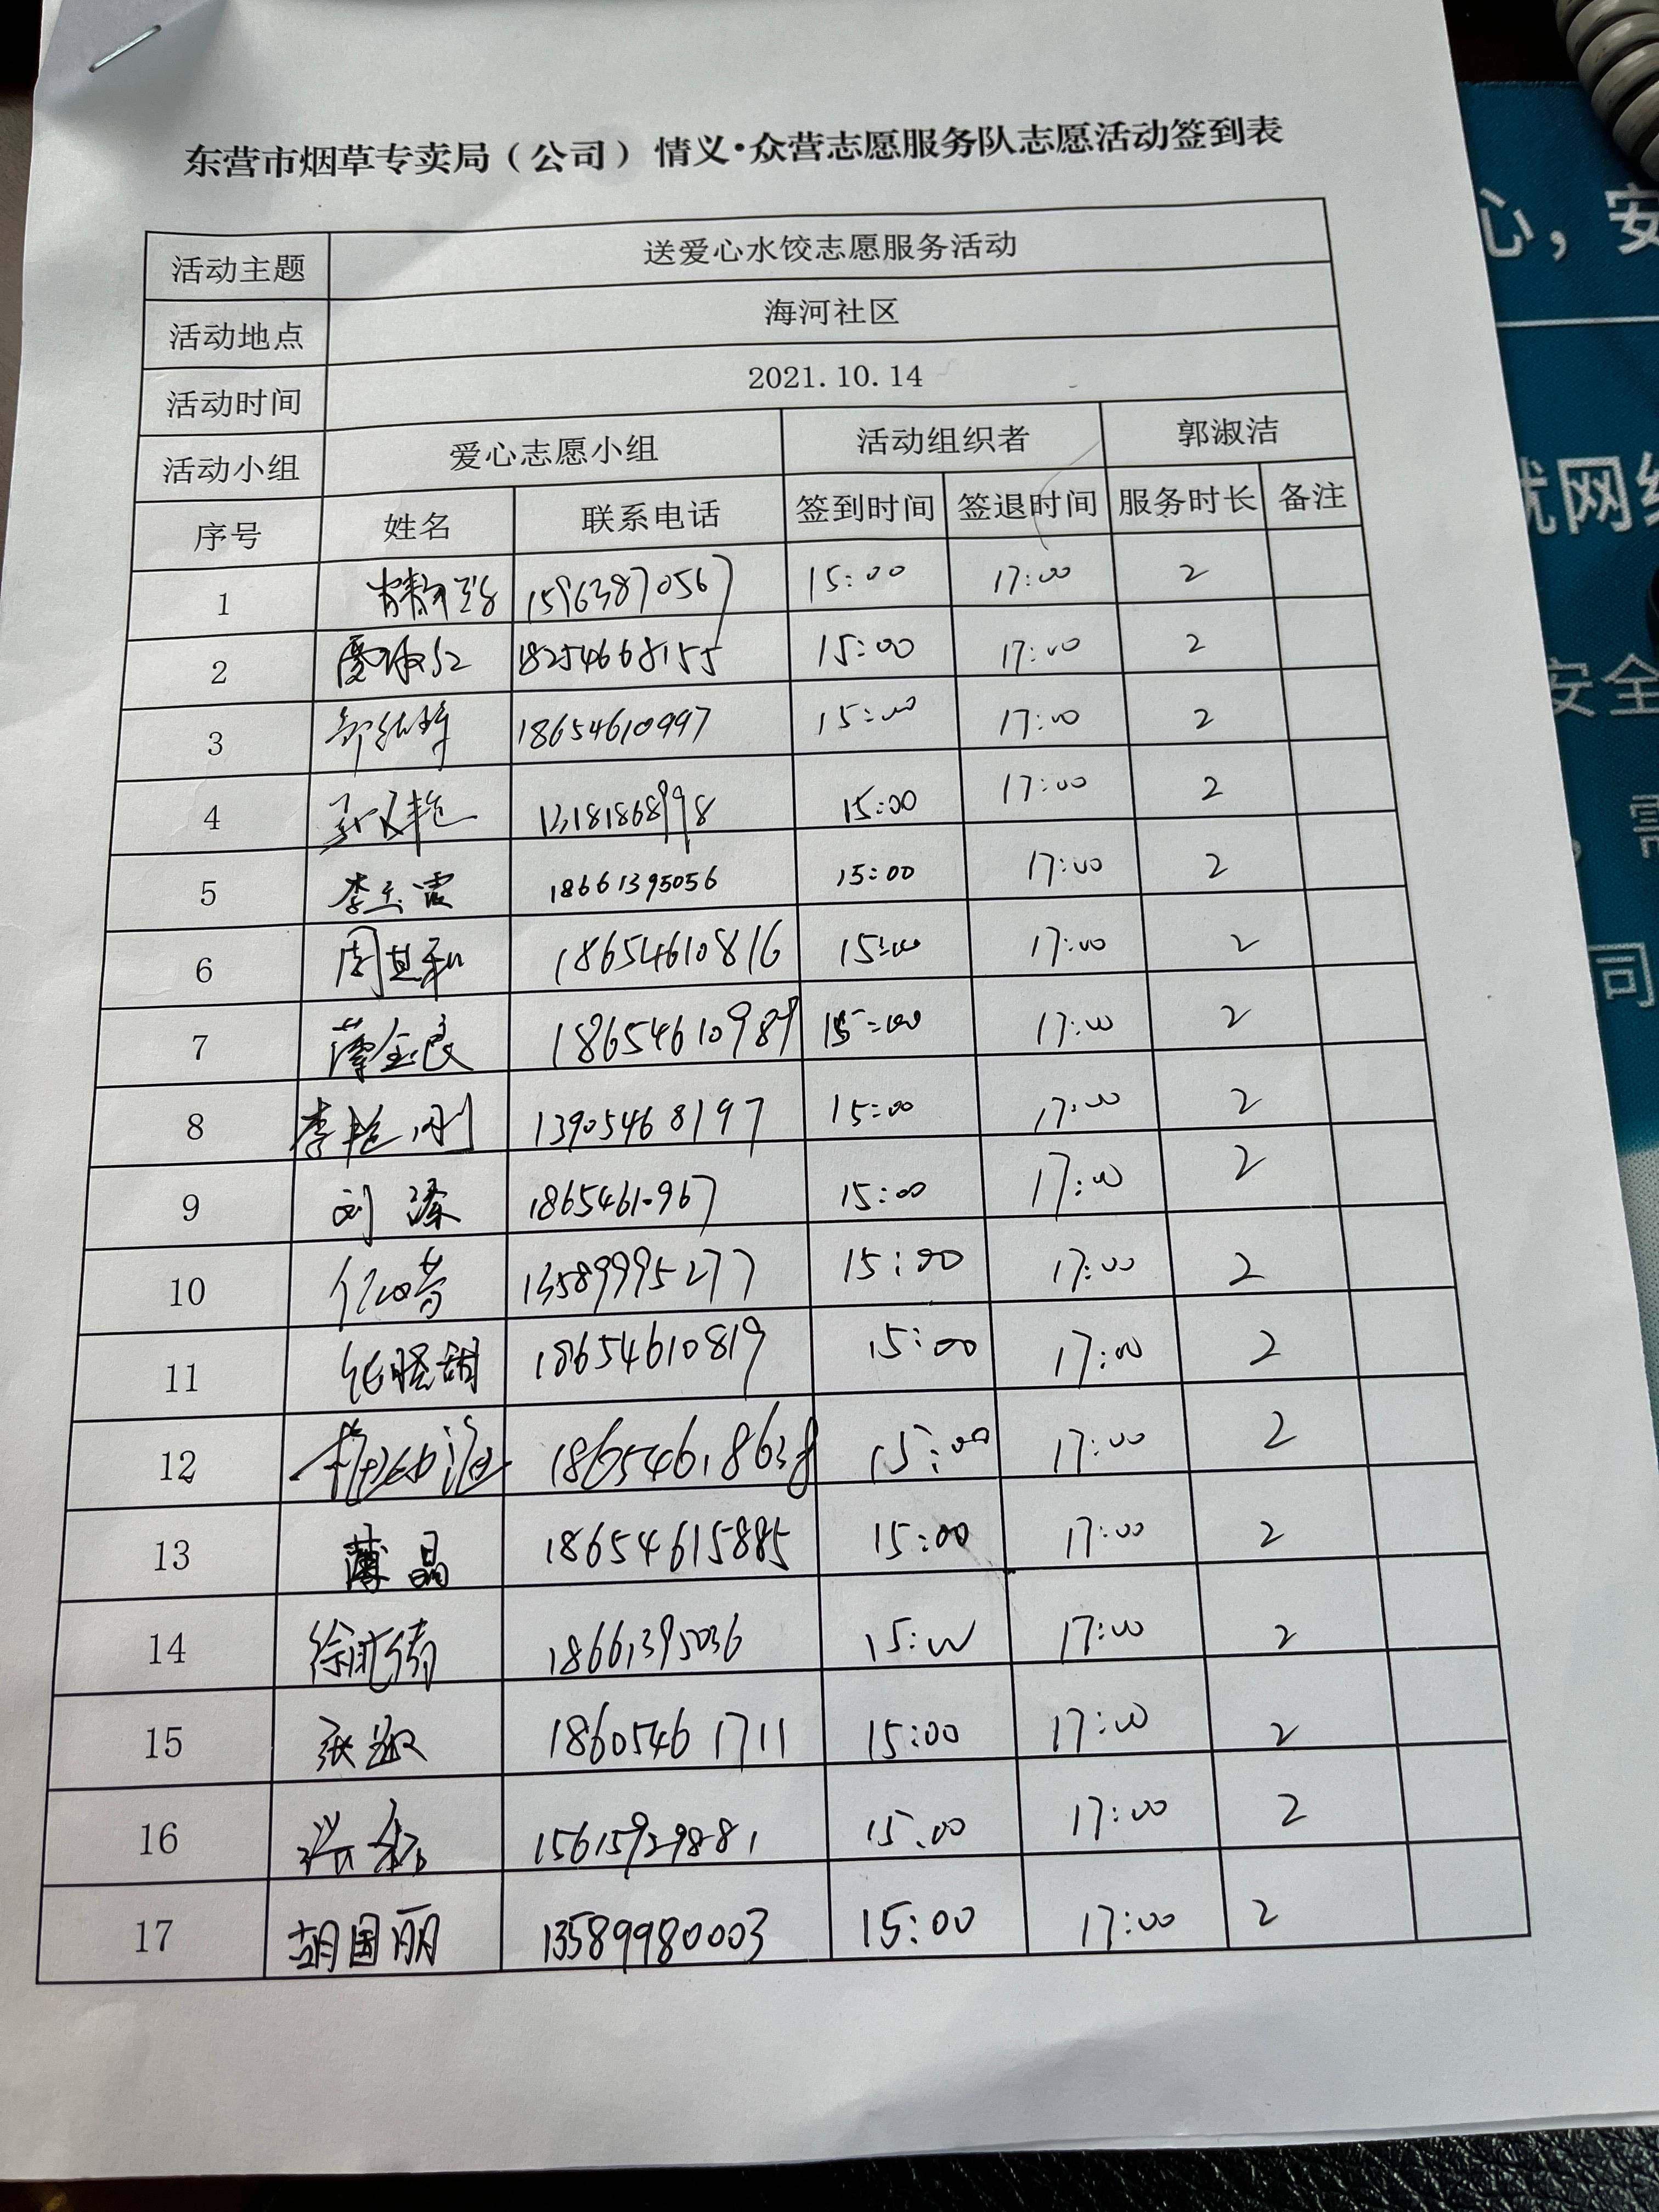 东营市烟草专卖局（公司）情义·众营志愿服务队志愿活动签到表
活动主题 送爱心水饺志愿服务活动
活动地点 海河社区
活动时间 2021.10.14
活动小组 爱心志愿小组 活动组织者 郭淑洁
序号 姓名 联系电话 签到时间 签退时间 服务时长 备注
1 15963870567 15:00 17:00 2
2 18254668155 15:00 17:00 2
3 18654610997 15:00 17:00 2
4 15:00 17:00 2
5 李玉霞 18661395056 15:00 17:00 2
6 周其和 18654610816 15:00 17:00 2
7 薄金良 18654610989 15:00 17:00 2
8 李艳刚 13905468197 15:00 17:00 2
9 刘溱 18654610967 15:00 17:00 2
10 13589995277 15:00 17:00 2
11 18654610819 15:00 17:00 2
12 18654618638 15:00 17:00 2
13 薄晶 18654615885 15:00 17:00 2
14 18661395036 15:00 17:00 2
15 张淑 18605461711 15:00 17:00 2
16 15615929881 15:00 17:00 2
17 胡国丽 13589980003 15:00 17:00 2
心，安
就网络
安全
，需
司